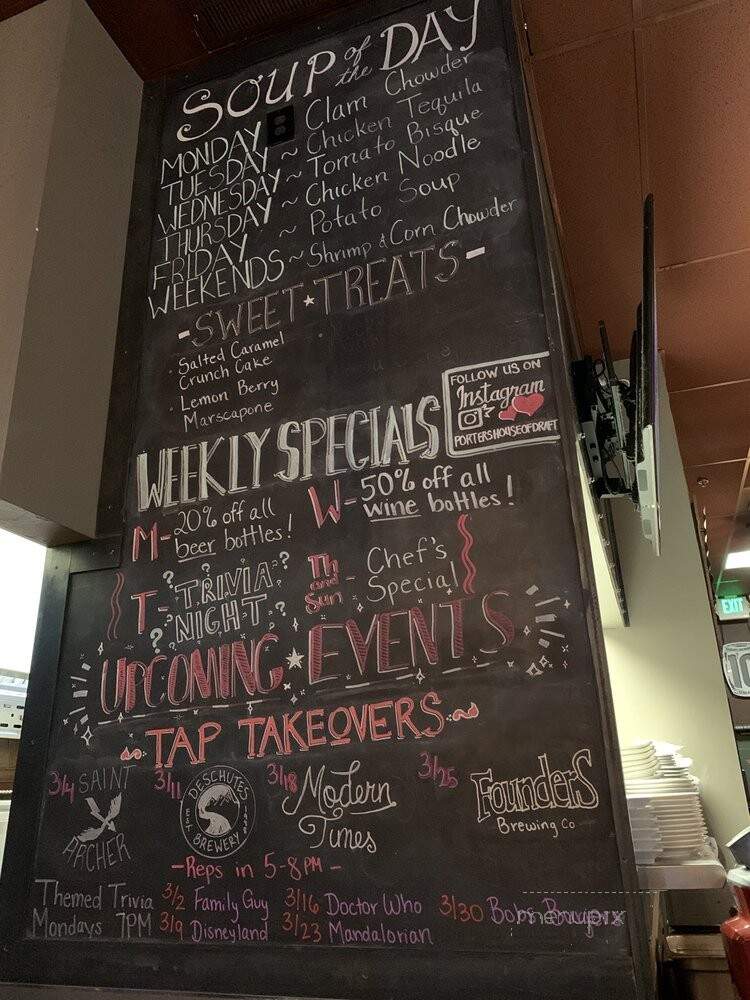 SOUP of the DAY
MONDAY ~ Clam Chowder
TUESDAY ~ Chicken Tequila
WEDNESDAY ~ Tomato Bisque
THURSDAY ~ Chicken Noodle
FRIDAY ~ Potato Soup
WEEKENDS ~ Shrimp & Corn Chowder
- SWEET TREATS -
· Salted Caramel
Crunch Cake
· Lemon Berry
Marscapone
FOLLOW US ON
Instagram
PORTERSHOUSEOFDRAFT
WEEKLY SPECIALS
M - 20% off all
beer bottles!
W - 50% off all
wine bottles!
T - ? TRIVIA ?
? NIGHT ?
Th and Sun - Chef's
Special
UPCOMING EVENTS
~ TAP TAKEOVERS ~
3/4 SAINT
ARCHER
3/11 DESCHUTES
EST 1988
BREWERY
3/18 Modern
Times
3/25 Founders
Brewing Co
- Reps in 5-8PM -
Themed Trivia
Mondays 7PM
3/2 Family Guy
3/9 Disneyland
3/16 Doctor Who
3/23 Mandalorian
3/30 Bobs
EXIT